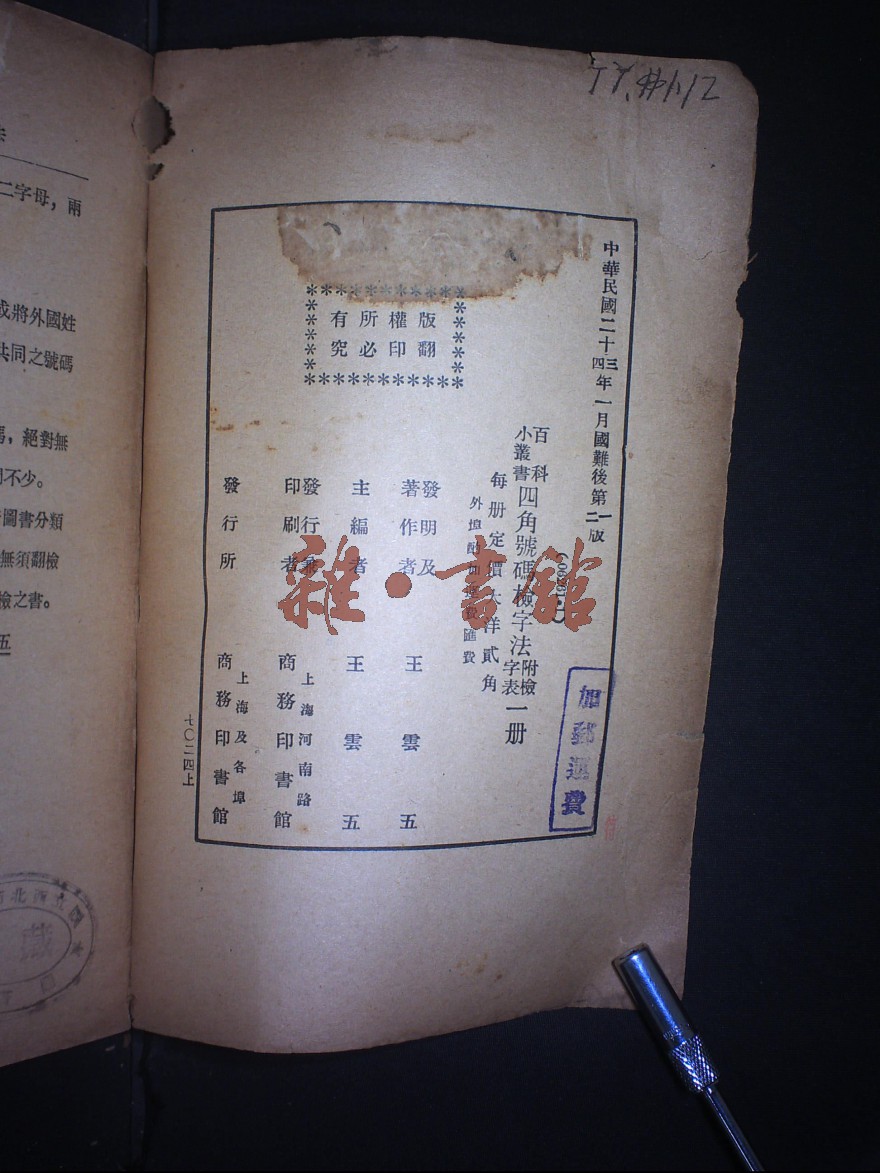 中華民國二十三年一月國難後第一版
四 二
百科小叢書 四角號碼檢字法 附檢字表 一册
每册定價大洋貳角
外埠酌加運費匯費
發明及著作者 王雲五
主編者 王雲五
發行兼印刷者 上海河南路 商務印書館
發行所 上海及各埠 商務印書館
版權所有
翻印必究
七〇二四上
加郵運費
雜·書館
二字母，兩
或將外國姓
共同之號碼
碼，絕對無
不少。
圖書分類
無須翻檢
檢之書。
五